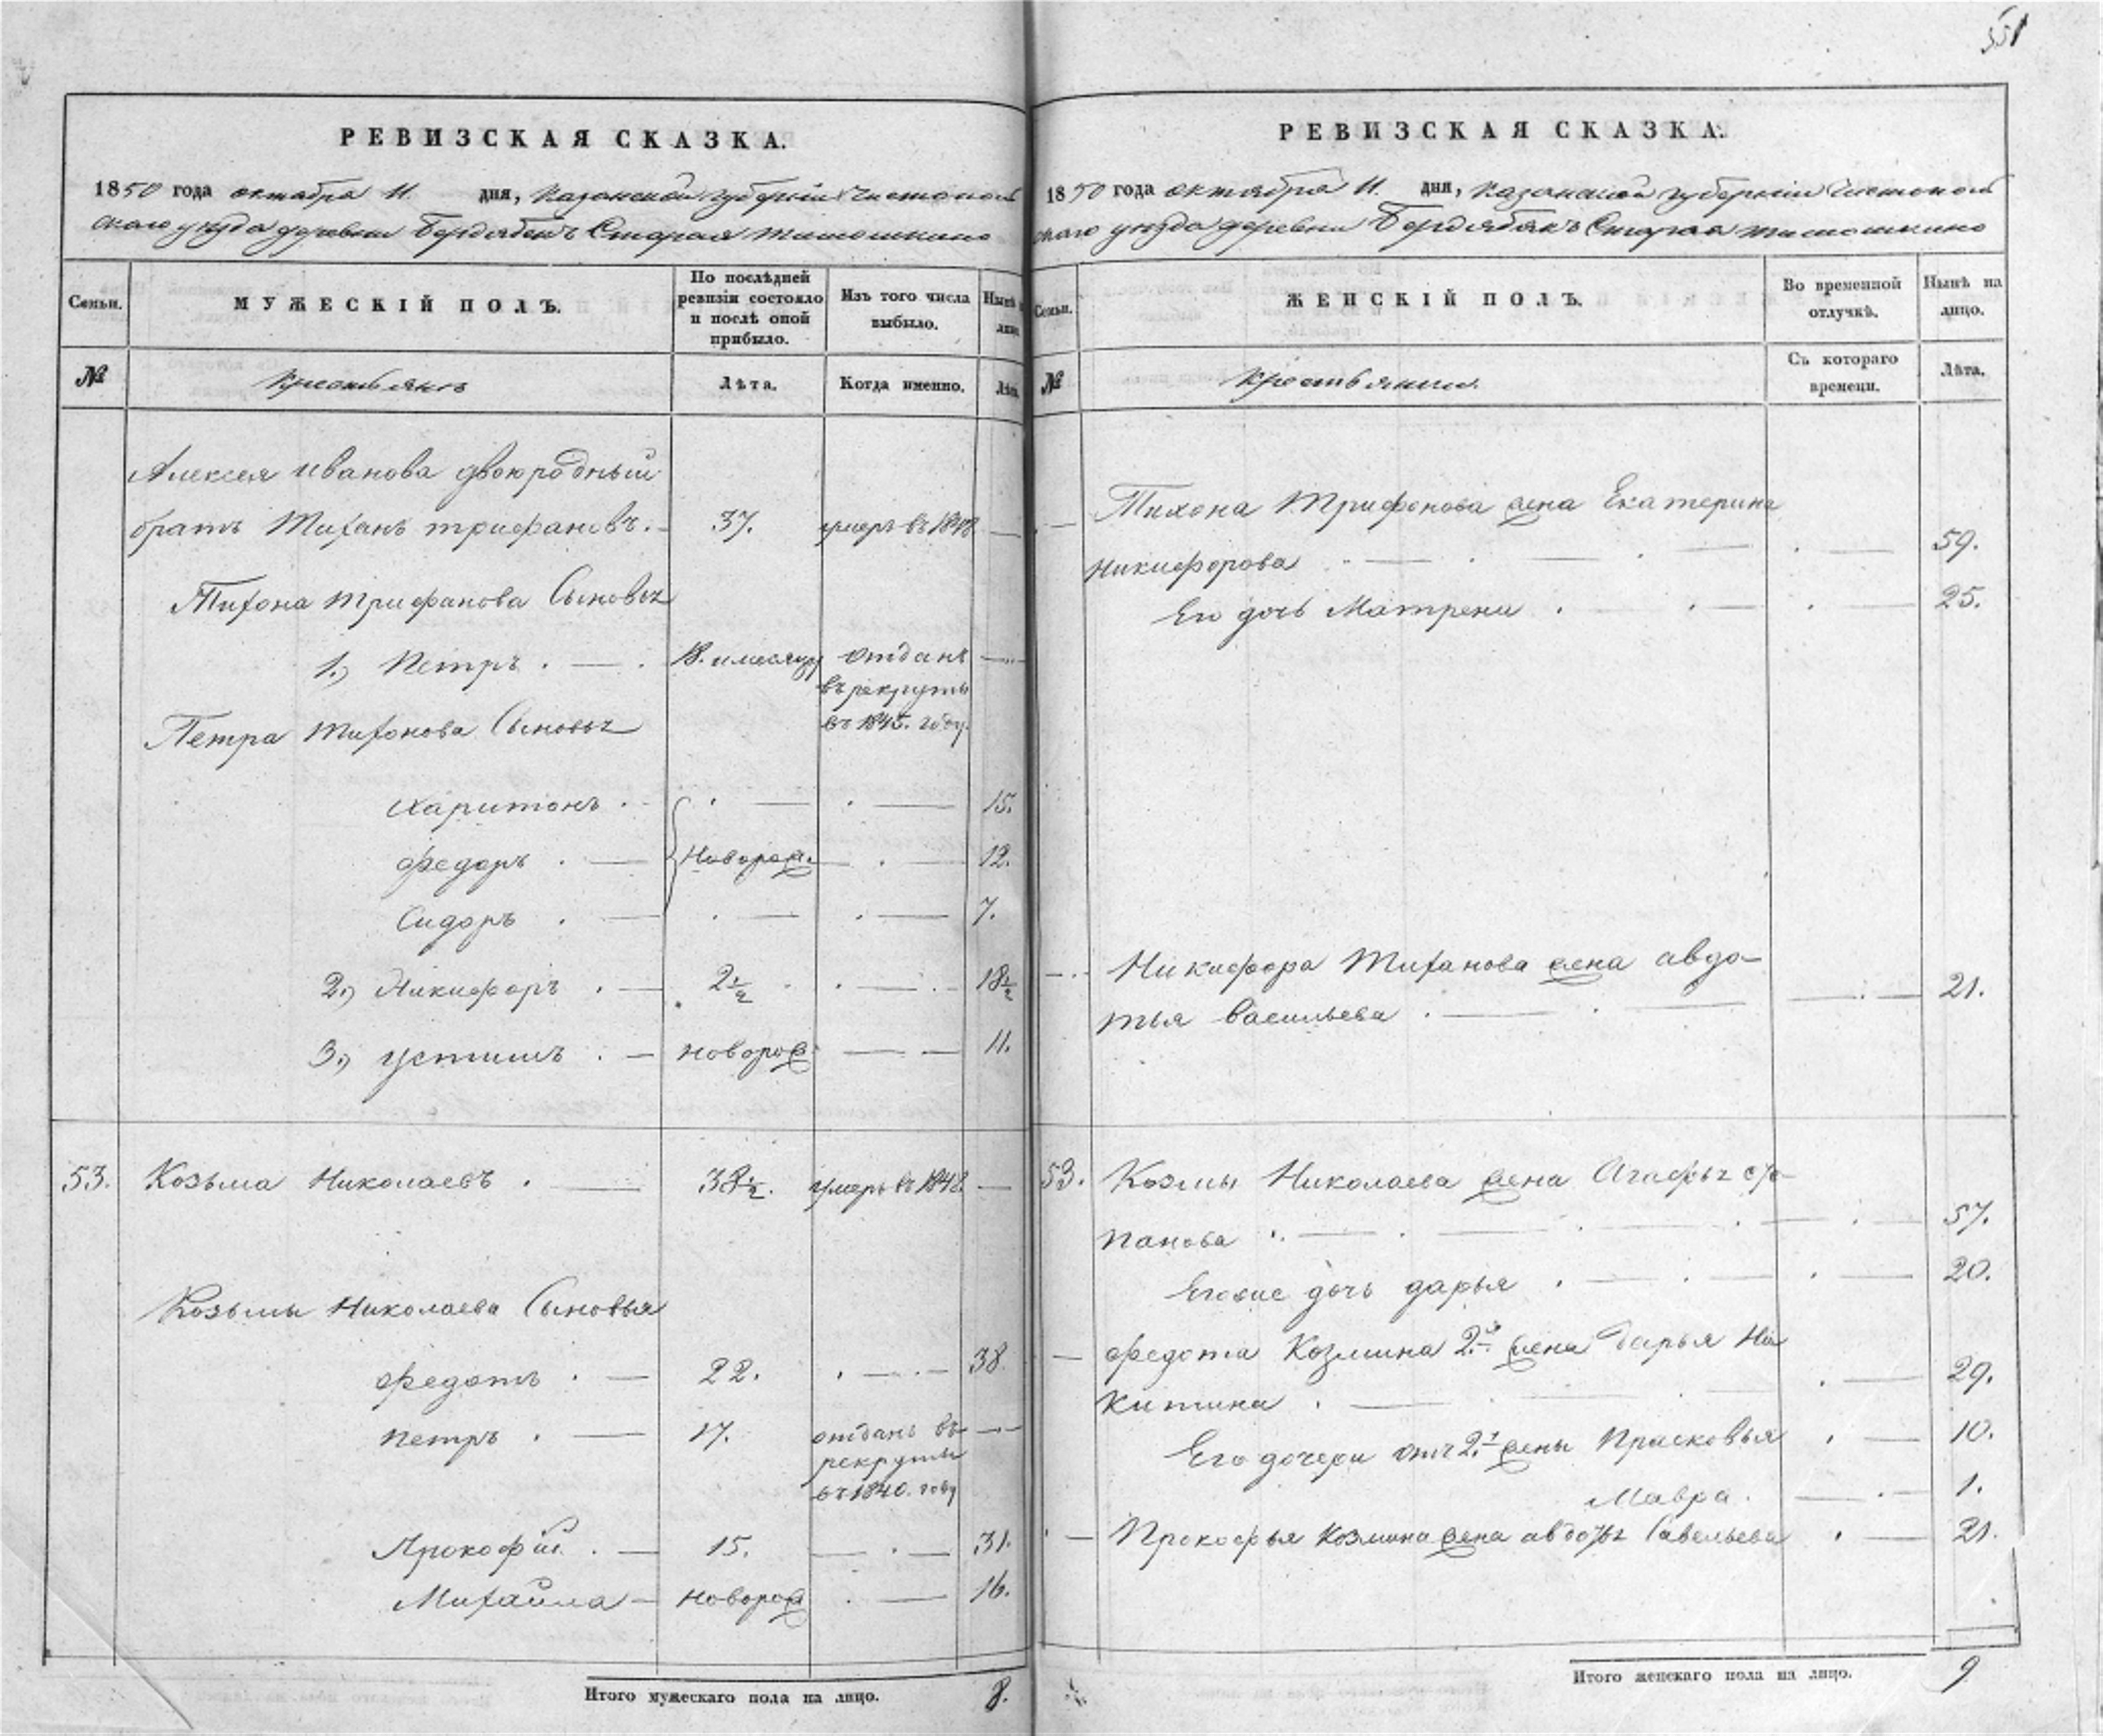 551
РЕВИЗСКАЯ СКАЗКА.
1850 года октября 11. дня, Казанской губернии Чистополь
скаго уезда деревни Бердебякъ Старая тимошкино
Семьи.
МУЖЕСКІЙ ПОЛЪ.
По послѣдней ревизіи состояло и послѣ оной прибыло.
Изъ того числа выбыло.
Нынѣ
лицо.
№
крестьянъ
Лѣта.
Когда именно.
Лѣта
Алексея иванова двоюродный
братъ Тихонъ трифановъ. 37. умеръ въ 1848
Тихона трифанова Сыновья
1.) Петръ. 18. отданъ
въ рекруты
въ 1845. году.
Петра Тихонова Сыновья
Харитонъ. 15.
Федоръ. Новорож. 12.
Сидоръ. 7.
2.) Никифоръ. 2½ 18½
3.) устинъ. новорож. 11.
53. Козьма Николаевъ. 38½. умеръ въ 1848.
Козьмы Николаева Сыновья
Федотъ. 22. 38.
петръ. 17. отданъ въ
рекруты
въ 1840. году
Прокофій. 15. 31.
Михайла новорож 16.
Итого мужескаго пола на лицо. 8.
РЕВИЗСКАЯ СКАЗКА.
1850 года октября 11. дня, Казанской губерніи Чистополь
скаго уезда деревни Бердябякъ Старая тимошкино
Семьи.
ЖЕНСКІЙ ПОЛЪ.
Во временной отлучкѣ.
Нынѣ на лицо.
№
крестьянки.
Съ котораго времени.
Лѣта.
Тихона Трифонова жена Екатерина
Никифорова 59.
Его дочь Матрена. 25.
Никифора Тиханова жена авдо-
тья васильева. 21.
53. Козмы Николаева жена Агафья
панова 57.
Его же дочь дарья. 20.
Федота Козмина 2.я жена дарья Ни
китина. 29.
Его дочери отъ 2.й жены Прасковья 10.
Мавра. 1.
Прокофья Козмина жена авдотья Савельева 21.
Итого женскаго пола на лицо. 9